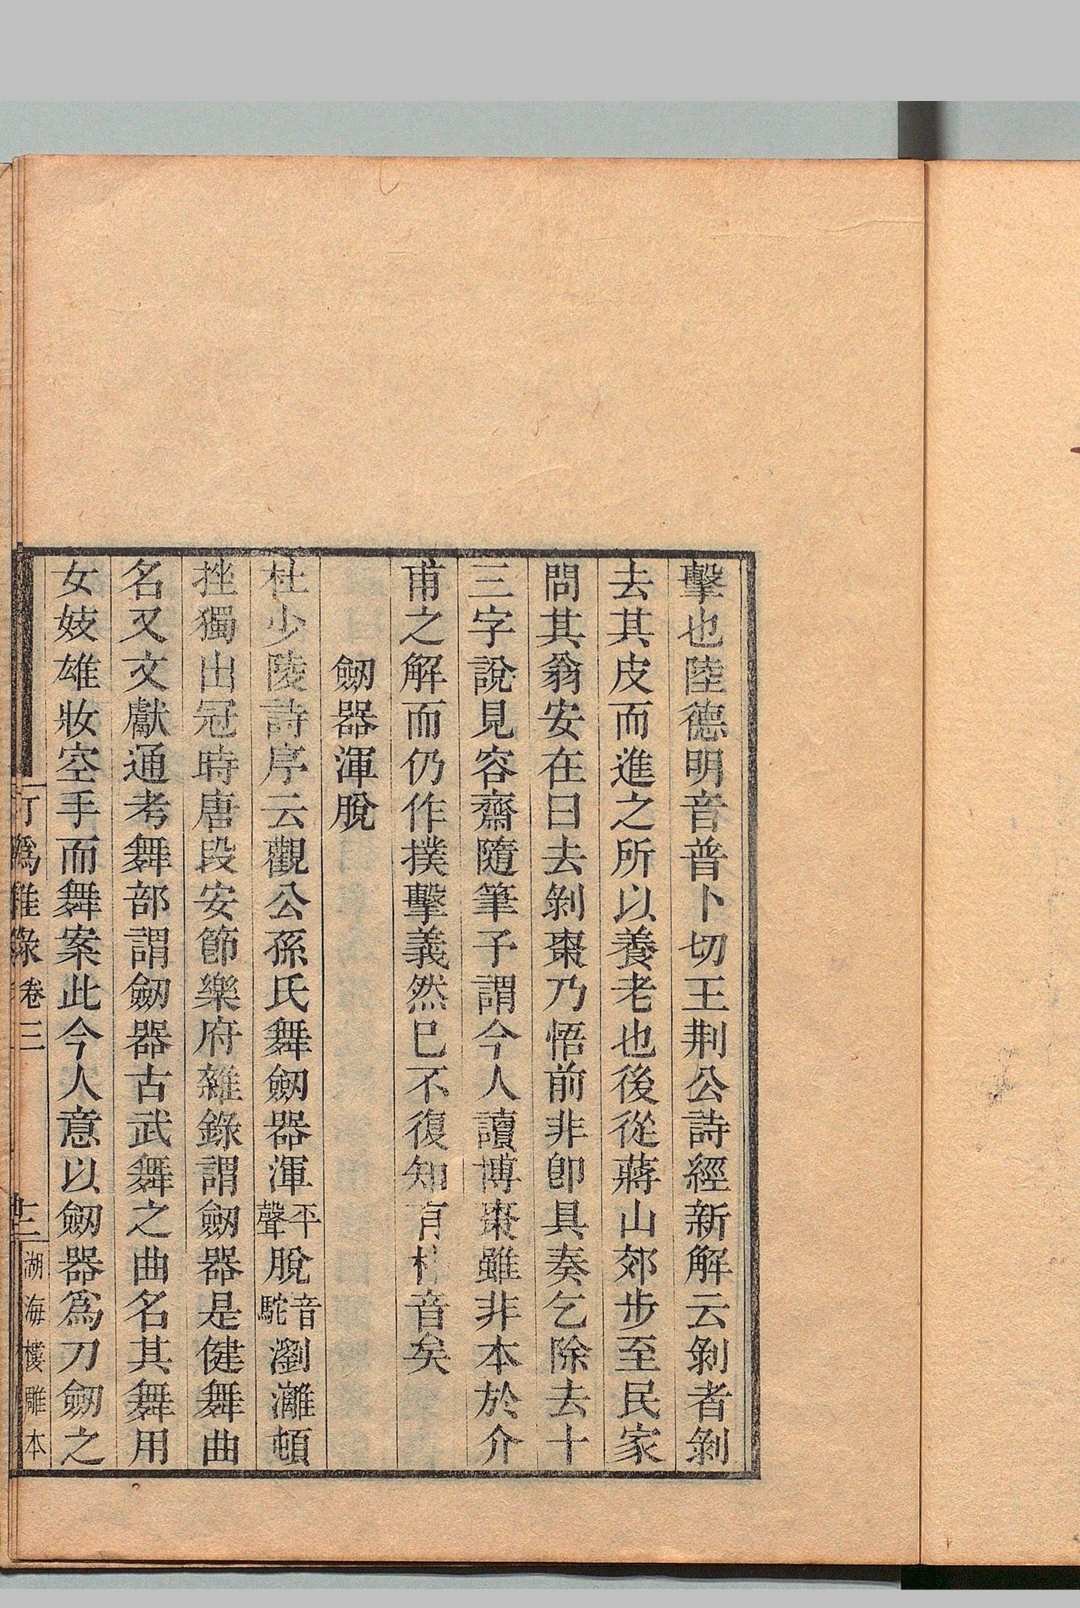 擊也陸德明音普卜切王荆公詩經新解云剝者剝
去其皮而進之所以養老也後從蔣山郊步至民家
問其翁安在曰去剝棗乃悟前非卽具奏乞除去十
三字說見容齋隨筆子謂今人讀博棗雖非本於介
甫之解而仍作撲擊義然已不復知有音矣
劒器渾脫
杜少陵詩序云觀公孫氏舞劒器渾平聲脫音駝瀏灕頓
挫獨出冠時唐段安節樂府雜錄謂劒器是健舞曲
名又文獻通考舞部謂劒器古武舞之曲名其舞用
女妓雄妝空手而舞案此今人意以劒器爲刀劒之
訂譌雜錄卷三
三
湖海樓雕本